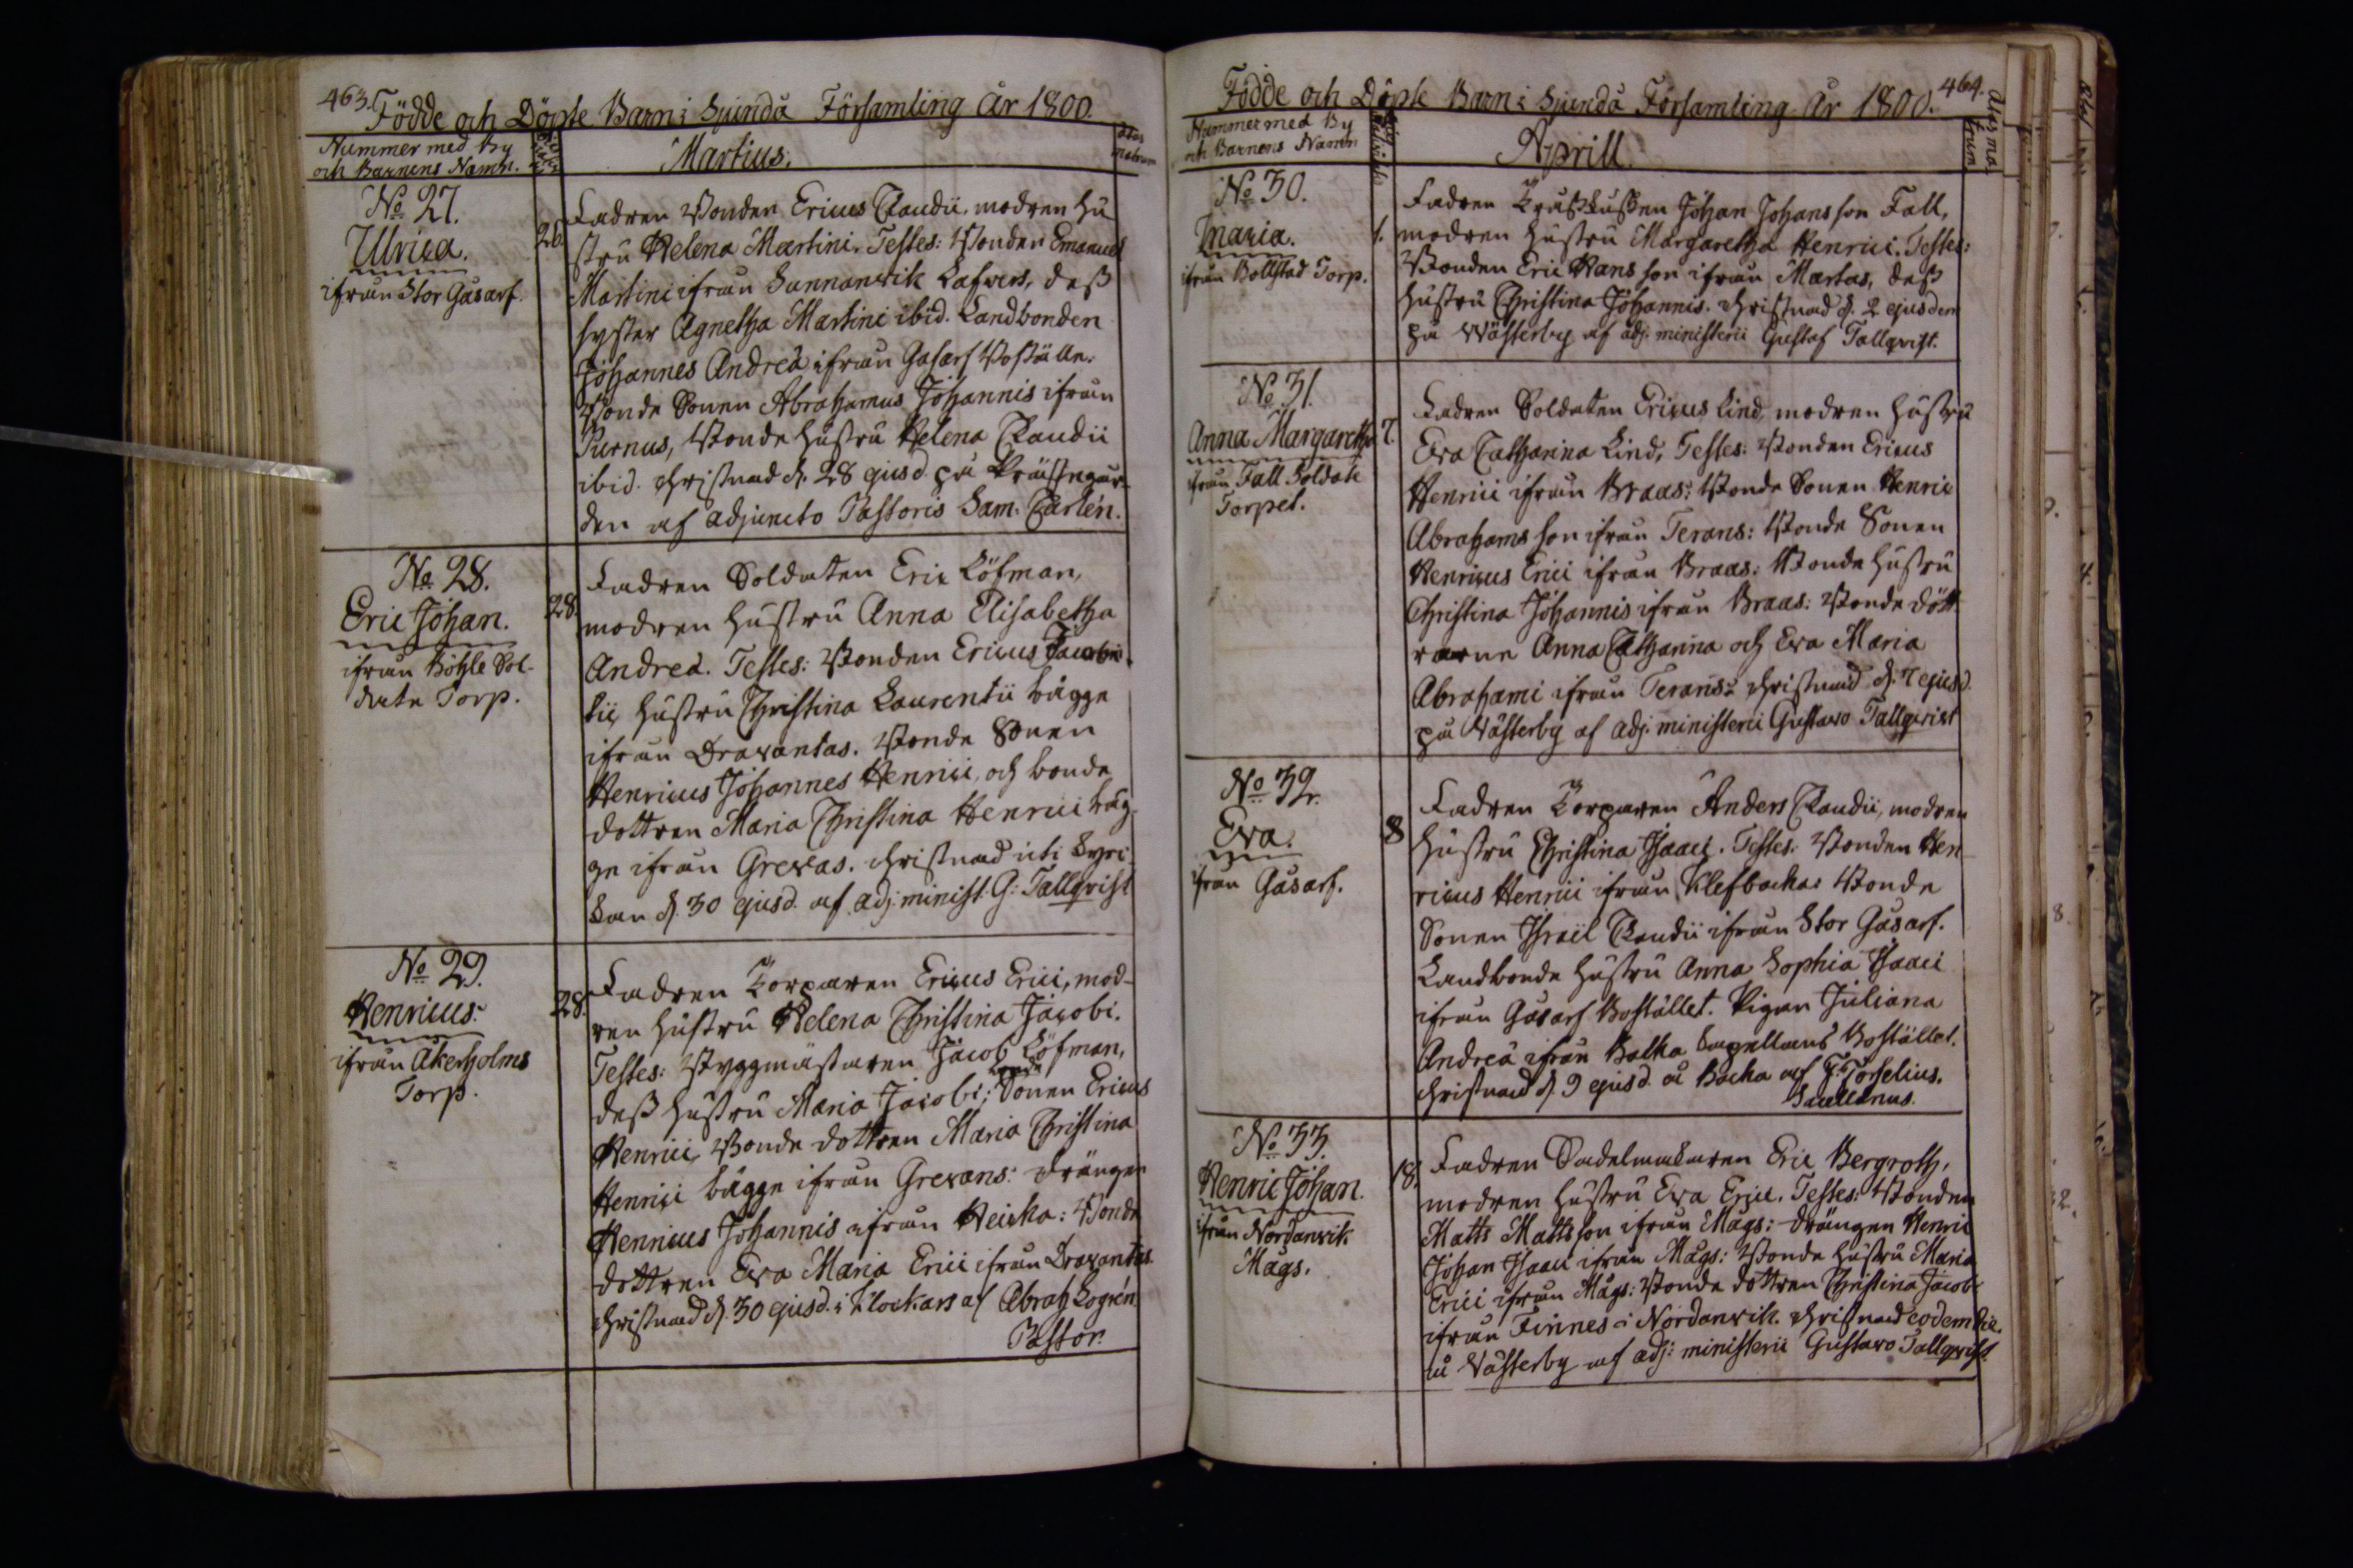 463.
Födde och Döpte Barn i Sjundå Församling År 1800.
Nummer med By
och Barnens Namn.
Martius.
No 27.
Ulrica.
ifrån Stor Gåsarf.
26.
Fadren Bonden Ericus Claudii. modren hu
stru Helena Martini. Testes: Bonden Emanuel
Martini ifrån Sunnanvik Lafvers, dess
syster Agnetha Martini ibid. Landbonden
Johannes Andreæ ifrån Gåsarf Boställe.
Bonde Sonen Abrahamus Johannis ifrån
Purnus, Bonde hustru Helena Claudii
ibid. christnad d. 28 ejusd. på Prästegår-
den af adjuncto Pastoris Sam: Carlén.
No 28.
Eric Johan.
ifrån Böhle Sol-
date Torp.
28.
Fadren Soldaten Eric Löfman,
modren hustru Anna Elisabetha
Andreæ. Testes: Bonden Ericus
hustru Christina Laurentii bägge
ifrån Dravantas. Bonde Sonen
Henricus Johannes Henrici, och bonde
dottren Maria Christina Henrici bäg-
ge ifrån Grevas. christnad uti kyrc-
kan d. 30 ejusd. af adj. minist. G: Tallqvist
No 29.
Henricus.
ifrån Åkerholms
Torp.
28.
Fadren Torparen Ericus Erici, mod-
ren hustru Helena Christina Jacobi.
Testes: Byggmästaren Jacob Löfman,
dess hustru Maria Jacobi; bonde Sonen Ericus
Henrici, Bonde dottren Maria Christina
Henrici bägge ifrån Grevans: drängen
Henricus Johannis ifrån Heicka: Bonde
dottren Eva Maria Erici ifrån Dravantas.
christnad d. 30 ejusd. i Klockars af Abrah Logrén
Pastor.
464.
Födde och Döpte Barn i Sjundå Församling År 1800.
Nummer med By
och Barnens Namn
Aprill.
Ætas ma-
trum
No 30.
Maria.
ifrån Bollstad Torp.
1.
Fadren Johan Johansson Fall,
modren hustru Margaretha Henrici. Testes:
Bonden Eric Hansson ifrån Martas, dess
hustru Christina Johannis. christnad d. 2 ejusdem
på Wästerby af adj. ministerii Gustaf Tallqvist.
No 31.
Anna Margaretha
ifrån Fall Soldate
Torpet.
7.
Fadren Soldaten Ericus Lind, modren hustru
Eva Catharina Lind, Testes: Bonden Ericus
Henrici ifrån Braas: Bonde Sonen Henric
Abrahamsson ifrån Terans: Bonde Sonen
Henricus Erici ifrån Braas: Bonde hustru
Christina Johannis ifrån Braas: Bonde dött
rarne Anna Catharina och Eva Maria
Abrahami ifrån Terans: christnad d. 7 ejusd.
på Västerby af adj. ministerii Gustavo Tallqvist
No 32.
Eva.
ifrån Gåsarf.
8
Fadren Torparen Anders Claudii, modren
hustru Christina Isaaci. Testes: Bonden Hen-
ricus Henrici ifrån Klefbacka: Bonde
Sonen Israël Claudii ifrån Stor Gåsarf.
Landbonde hustru Anna Sophia Isaaci
ifrån Gåsarf Bostället. Pigan Juliana
Andreæ ifrån Batka Capellans Bostället.
christnad d. 9 ejusd. å Backa af G: Forselius.
Sacellanus.
No 33.
Henric Johan.
ifrån Nordanvik
Mågs.
18.
Fadren Sadelmakaren Eric Bergroth,
modren hustru Eva Erici. Testes: Bonden
Matts Mattsson ifrån Mågs: drängen Henric
Johan Isaaci ifrån Mågs: Bonde hustru Maria
Erici ifrån Mågs: Bonde dottren Christina Jacobi
ifrån Finnes i Nordanvik. christnad eodem die.
å Västerby af adj: ministerii Gustavo Tallqvist.